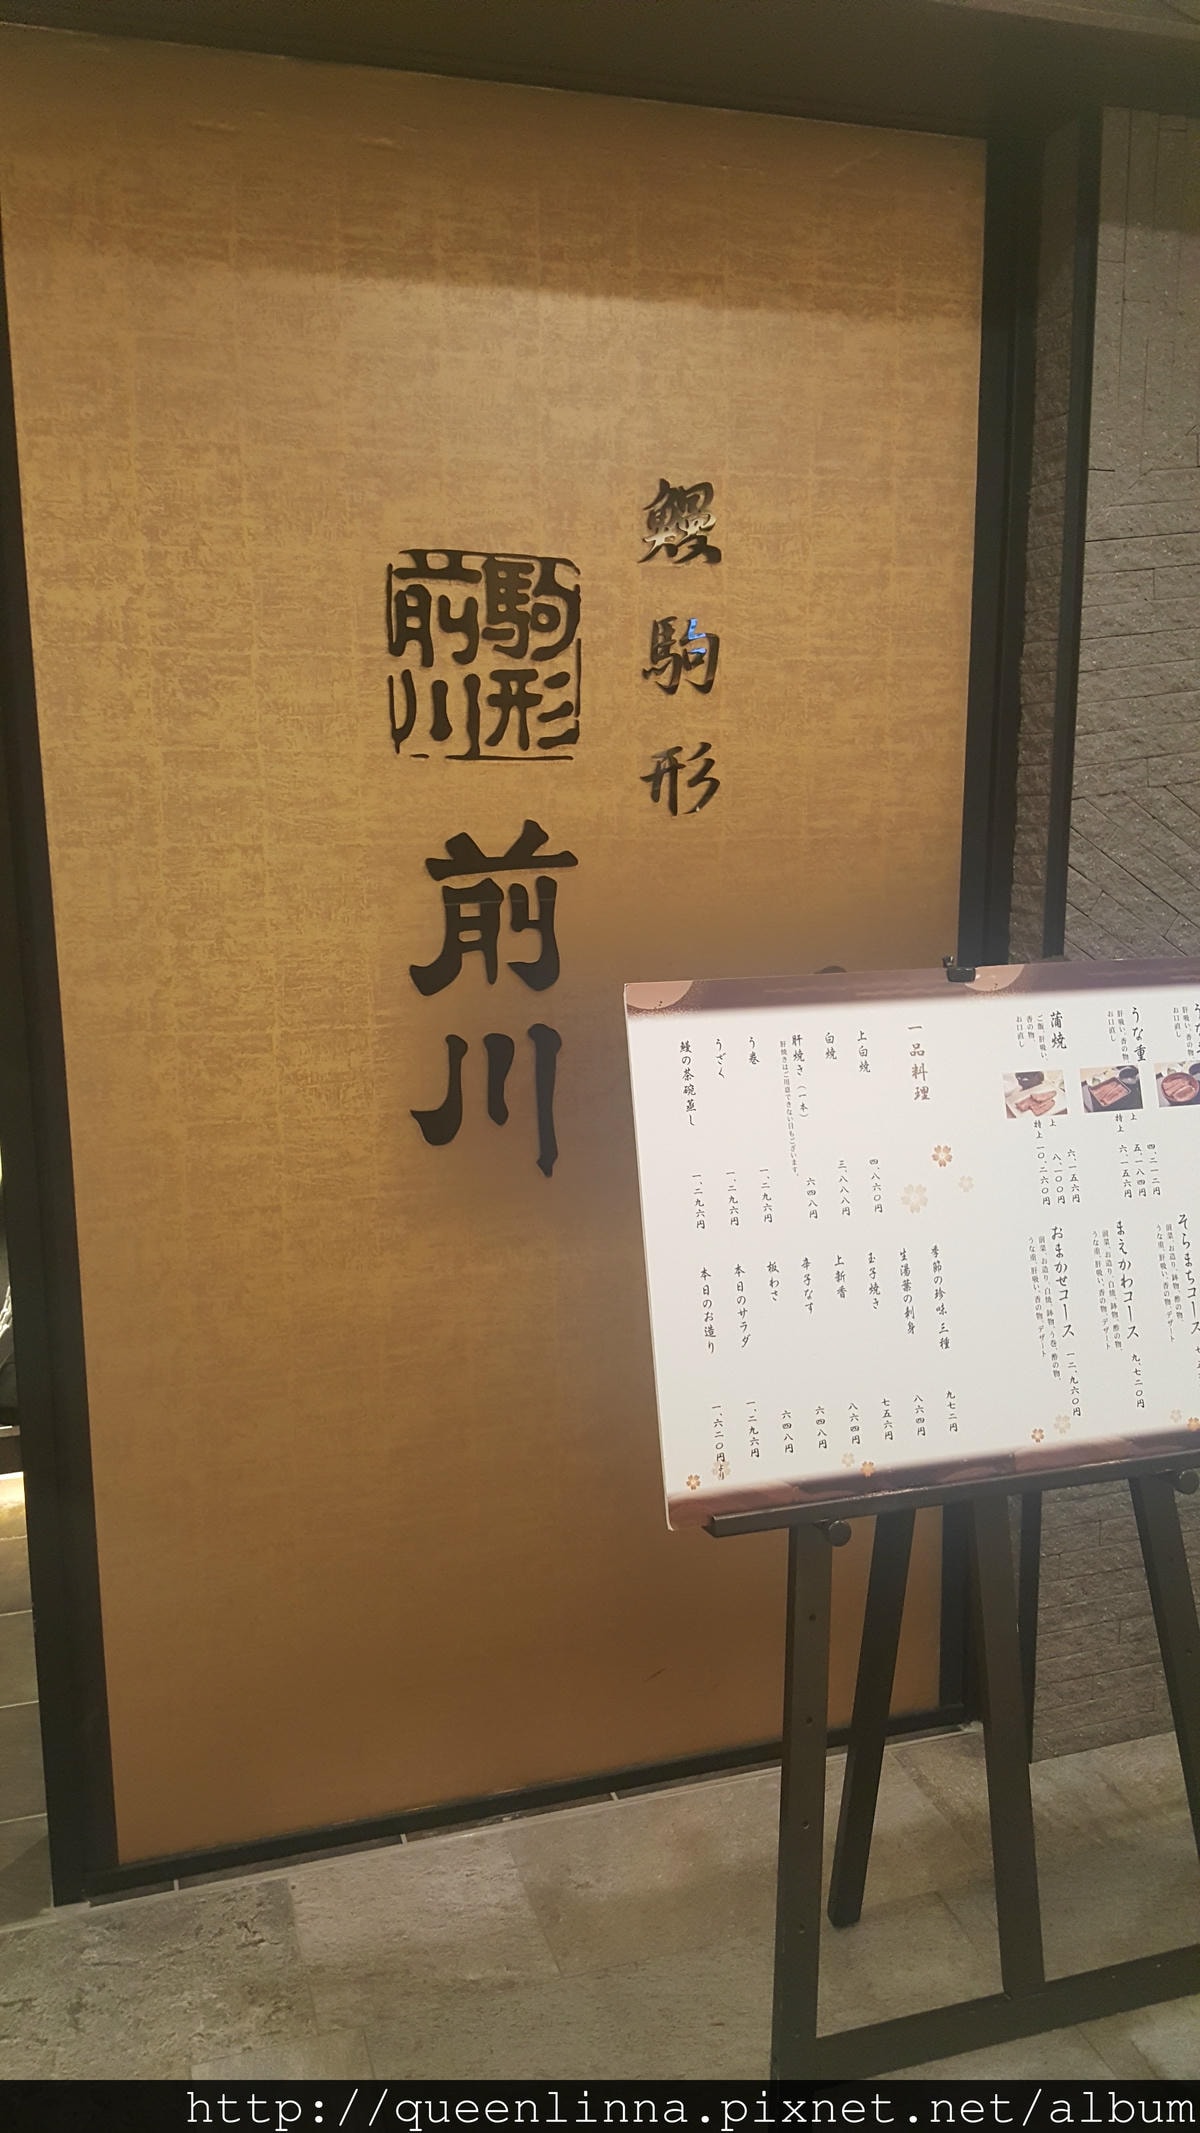 鰻
駒
形
駒形
前川
前
川
うな重
肝吸い、香の物、
お口直し
四、二一二円
上 五、一八四円
特上 六、一五六円
蒲焼
ご飯、肝吸い、
香の物、
お口直し
六、一五六円
上 八、一〇〇円
特上 一〇、二六〇円
そらまちコース
前菜、お造り、鉢物、酢の物、
うな重、肝吸い、香の物、デザート
まえかわコース 九、七二〇円
前菜、お造り、白焼、鉢物、酢の物、
うな重、肝吸い、香の物、デザート
おまかせコース 一二、九六〇円
前菜、お造り、白焼、鉢物、う巻、酢の物、
うな重、肝吸い、香の物、デザート
一品料理
上白焼 四、八六〇円
白焼 三、八八八円
肝焼き(一本) 六四八円
肝焼きはご用意できない日もございます。
う巻 一、二九六円
うざく 一、二九六円
鰻の茶碗蒸し 一、二九六円
季節の珍味 三種 九七二円
生湯葉の刺身 八六四円
玉子焼き 七五六円
上新香 八六四円
辛子なす 六四八円
板わさ 六四八円
本日のサラダ 一、二九六円
本日のお造り 一、六二〇円より
http://queenlinna.pixnet.net/album